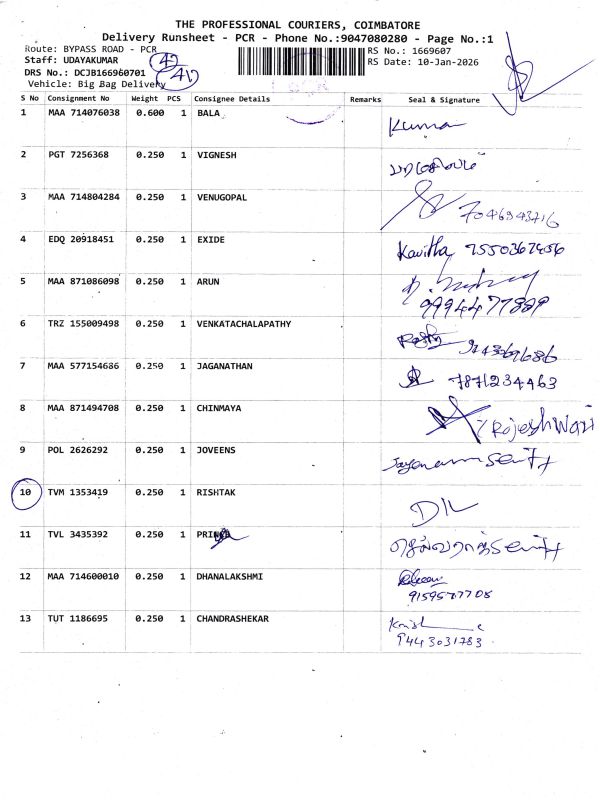 THE PROFESSIONAL COURIERS, COIMBATORE
Delivery Runsheet - PCR - Phone No.:9047080280 - Page No.:1
Route: BYPASS ROAD - PCR
RS No.: 1669607
Staff: UDAYAKUMAR
RS Date: 10-Jan-2026
DRS No.: DCJB166960701
Vehicle: Big Bag Delivery
S No Consignment No Weight PCS Consignee Details Remarks Seal & Signature
1 MAA 714076038 0.600 1 BALA Kumar
2 PGT 7256368 0.250 1 VIGNESH
3 MAA 714804284 0.250 1 VENUGOPAL 7046943716
4 EDQ 20918451 0.250 1 EXIDE Kavitha 7550367456
5 MAA 871086098 0.250 1 ARUN
9994477889
6 TRZ 155009498 0.250 1 VENKATACHALAPATHY
7 MAA 577154686 0.250 1 JAGANATHAN 7871234463
8 MAA 871494708 0.250 1 CHINMAYA Rajeshwari
9 POL 2626292 0.250 1 JOVEENS
10 TVM 1353419 0.250 1 RISHTAK
11 TVL 3435392 0.250 1
12 MAA 714600010 0.250 1 DHANALAKSHMI
13 TUT 1186695 0.250 1 CHANDRASHEKAR
9443031783